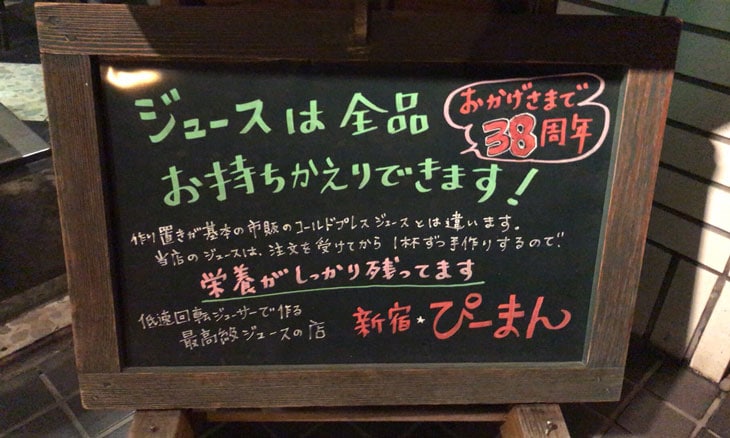 ジュースは全品
おかげさまで
38周年
お持ちかえりできます！
作り置きが基本の市販のコールドプレスジュースとは違います。
当店のジュースは、注文を受けてから1杯ずつ手作りするので！
栄養がしっかり残ってます
低速回転ジューサーで作る
最高級ジュースの店
新宿★ぴーまん